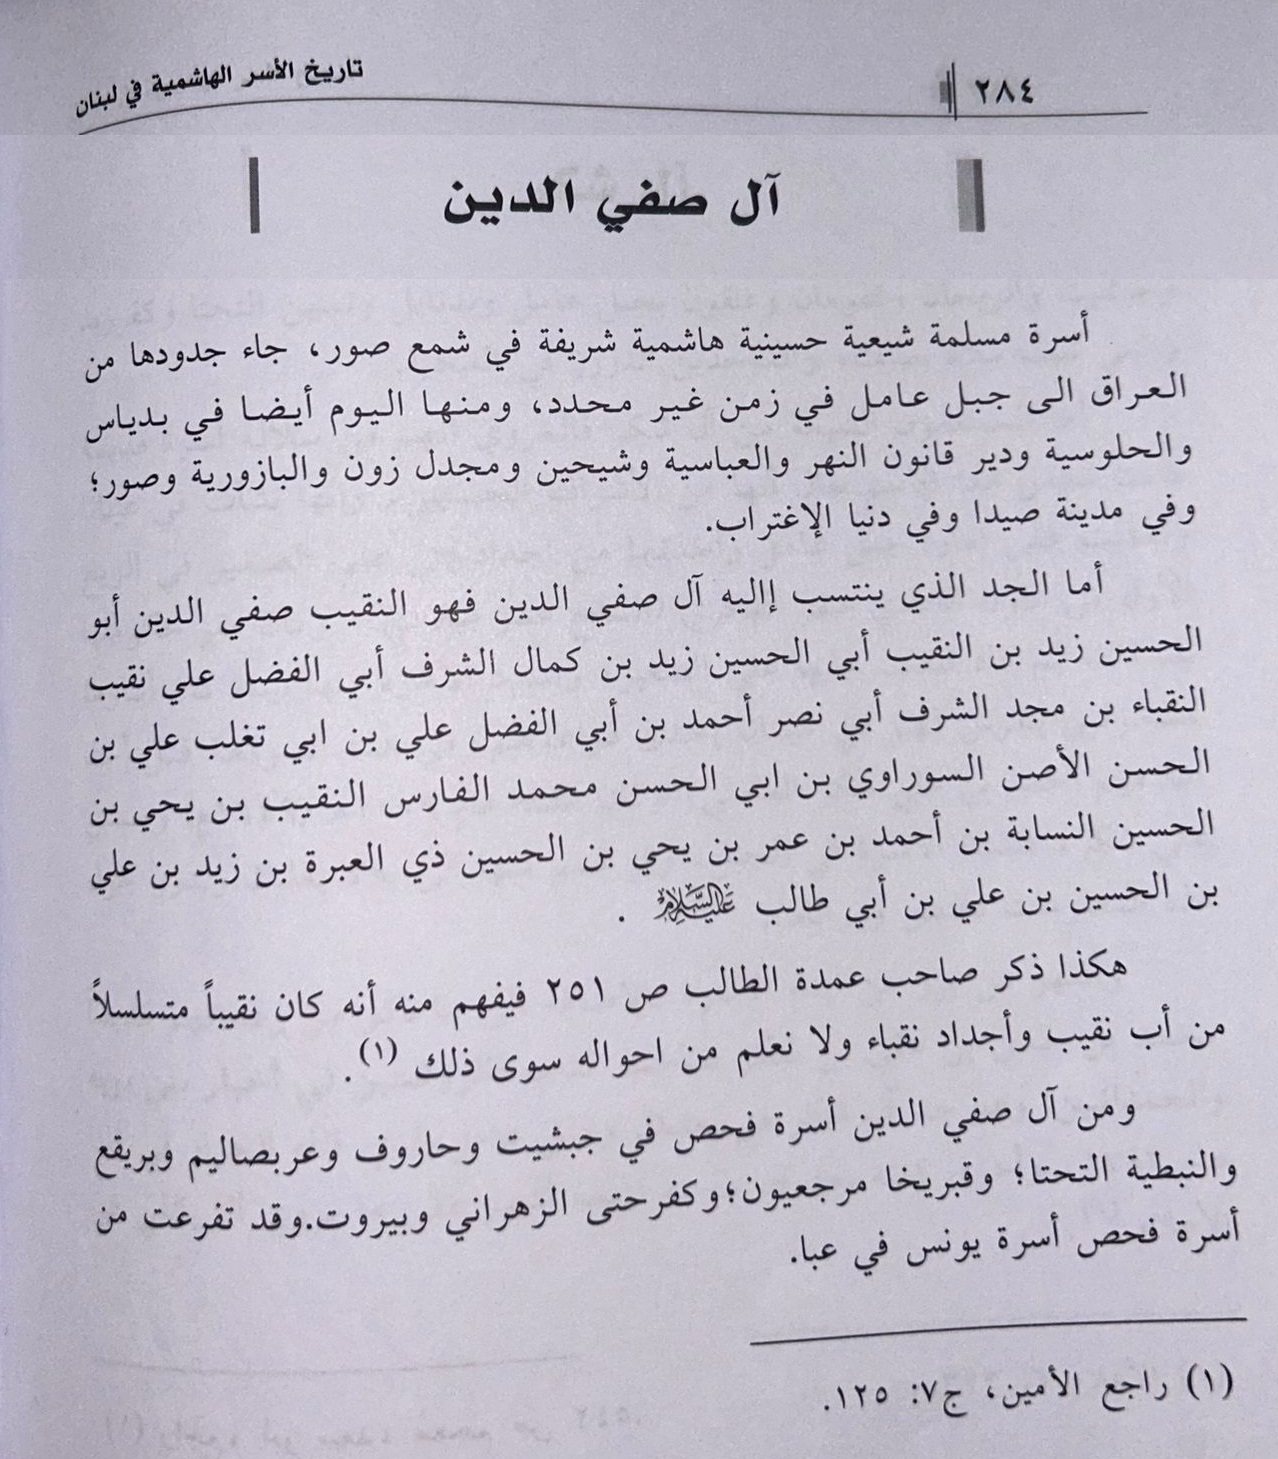 ٢٨٤
تاريخ الأسر الهاشمية في لبنان
آل صفي الدين
أسرة مسلمة شيعية حسينية هاشمية شريفة في شمع صور، جاء جدودها من
العراق الى جبل عامل في زمن غير محدد، ومنها اليوم أيضا في بدياس
والحلوسية ودير قانون النهر والعباسية وشيحين ومجدل زون والبازورية وصور؛
وفي مدينة صيدا وفي دنيا الإغتراب.
أما الجد الذي ينتسب إاليه آل صفي الدين فهو النقيب صفي الدين أبو
الحسين زيد بن النقيب أبي الحسين زيد بن كمال الشرف أبي الفضل علي نقيب
النقباء بن مجد الشرف أبي نصر أحمد بن أبي الفضل علي بن ابي تغلب علي بن
الحسن الأصن السوراوي بن ابي الحسن محمد الفارس النقيب بن يحي بن
الحسين النسابة بن أحمد بن عمر بن يحي بن الحسين ذي العبرة بن زيد بن علي
بن الحسين بن علي بن أبي طالب عليه السلام .
هكذا ذكر صاحب عمدة الطالب ص ٢٥١ فيفهم منه أنه كان نقيباً متسلسلاً
من أب نقيب وأجداد نقباء ولا نعلم من احواله سوى ذلك (١).
ومن آل صفي الدين أسرة فحص في جبشيت وحاروف وعربصاليم وبريقع
والنبطية التحتا؛ وقبريخا مرجعيون؛وكفرحتى الزهراني وبيروت.وقد تفرعت من
أسرة فحص أسرة يونس في عبا.
(١) راجع الأمين، ج٧: ١٢٥.